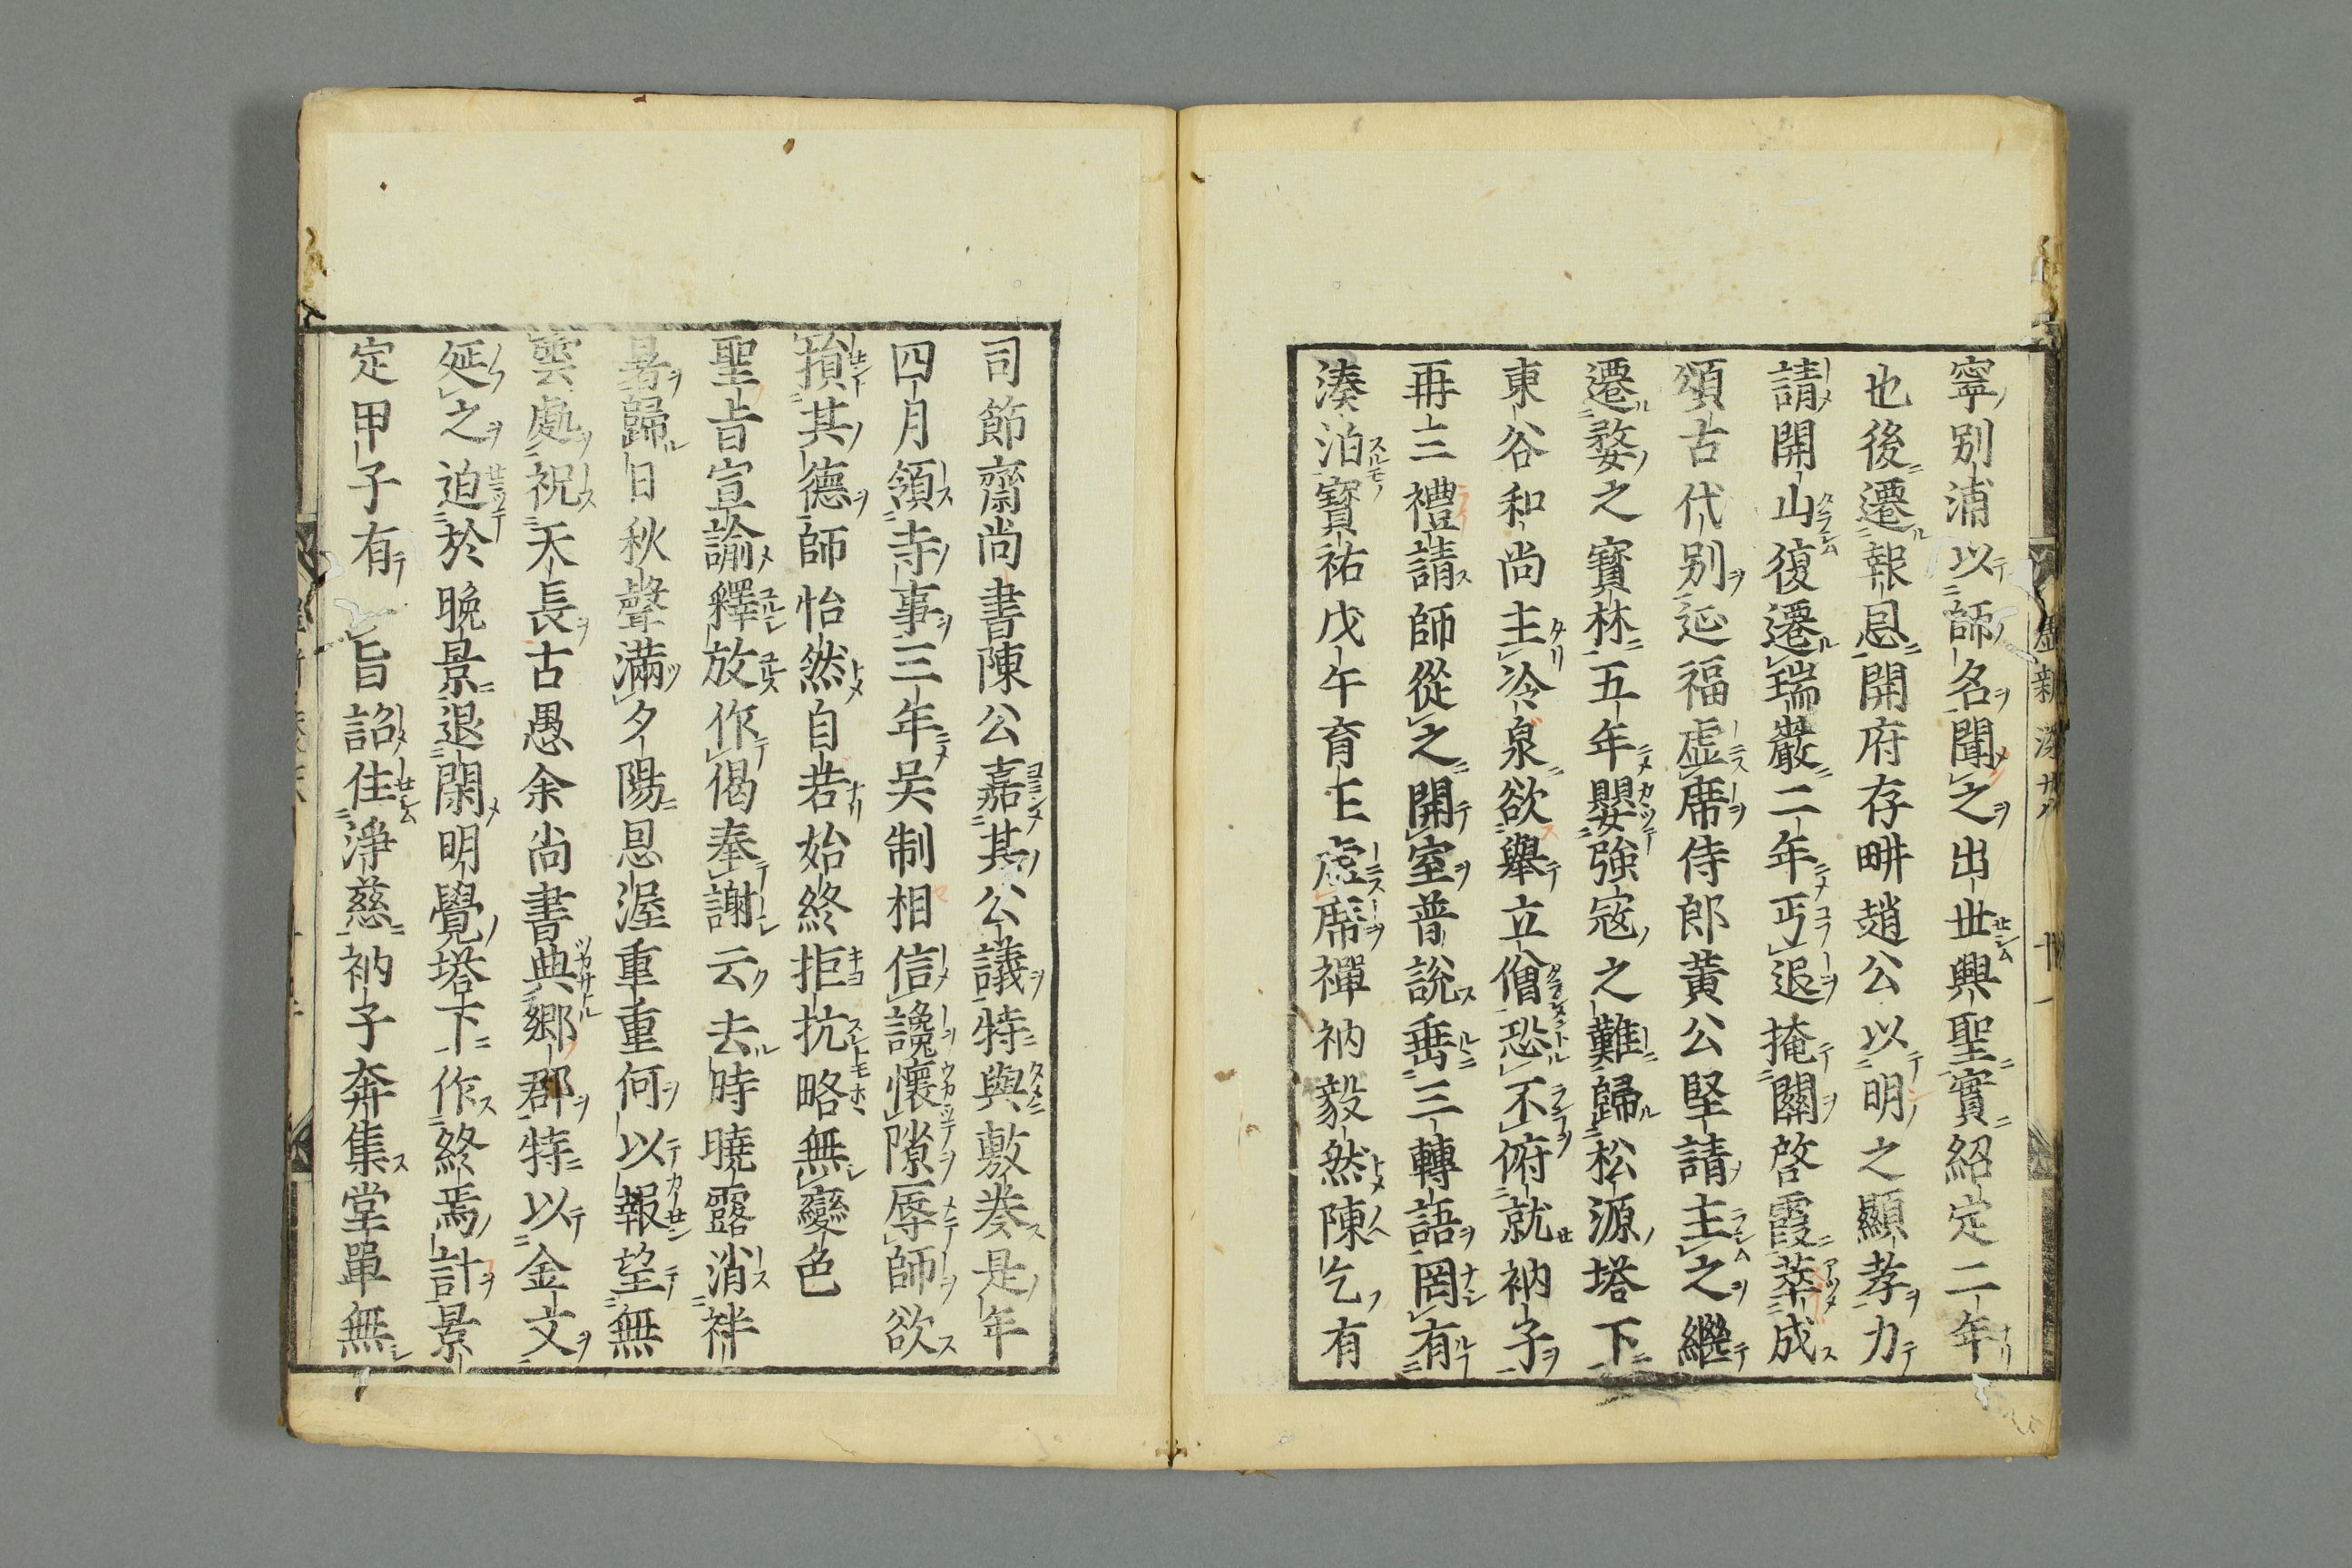 寧別浦以師名聞之出世興聖實紹定二年
也後遷報恩開府存畊趙公以明之顯孝力
請開山復遷瑞巖二年丐退掩關啓霞萃成
頌古代別延福虛席侍郎黃公堅請主之繼
遷婺之寳林五年嬰強寇之難歸松源塔下
東谷和尚主冷泉欲舉立僧恐不俯就衲子
再三禮請師從之開室普說垂三轉語罔有
湊泊寳祐戊午育王虛席禪衲毅然陳乞有
司節齋尚書陳公嘉其公議特與敷奏是年
四月領寺事三年吳制相信讒懷隙辱師欲
損其德師怡然自若始終拒抗略無變色
聖旨宣諭釋放作偈奉謝云去時曉露消袢
暑歸日秋聲滿夕陽恩渥重重何以報望無
雲處祝天長古愚余尚書典鄉郡特以金文
延之迫於晚景退閑明覺塔下作終焉計景
定甲子有旨詔住淨慈衲子奔集堂單無